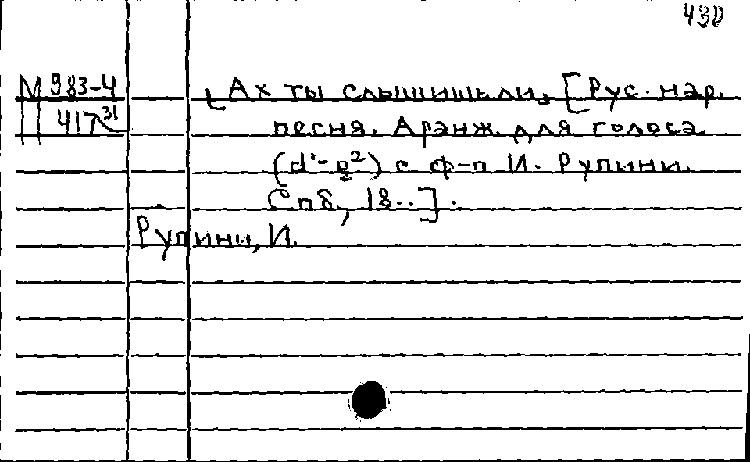 430
М 983-4
417 31
Ах ты слышишь ли, [Рус. нар.
песня. Аранж. для голоса
(d¹-g²) с ф-п И. Рупини.
Спб, 18..].
Рупини, И.